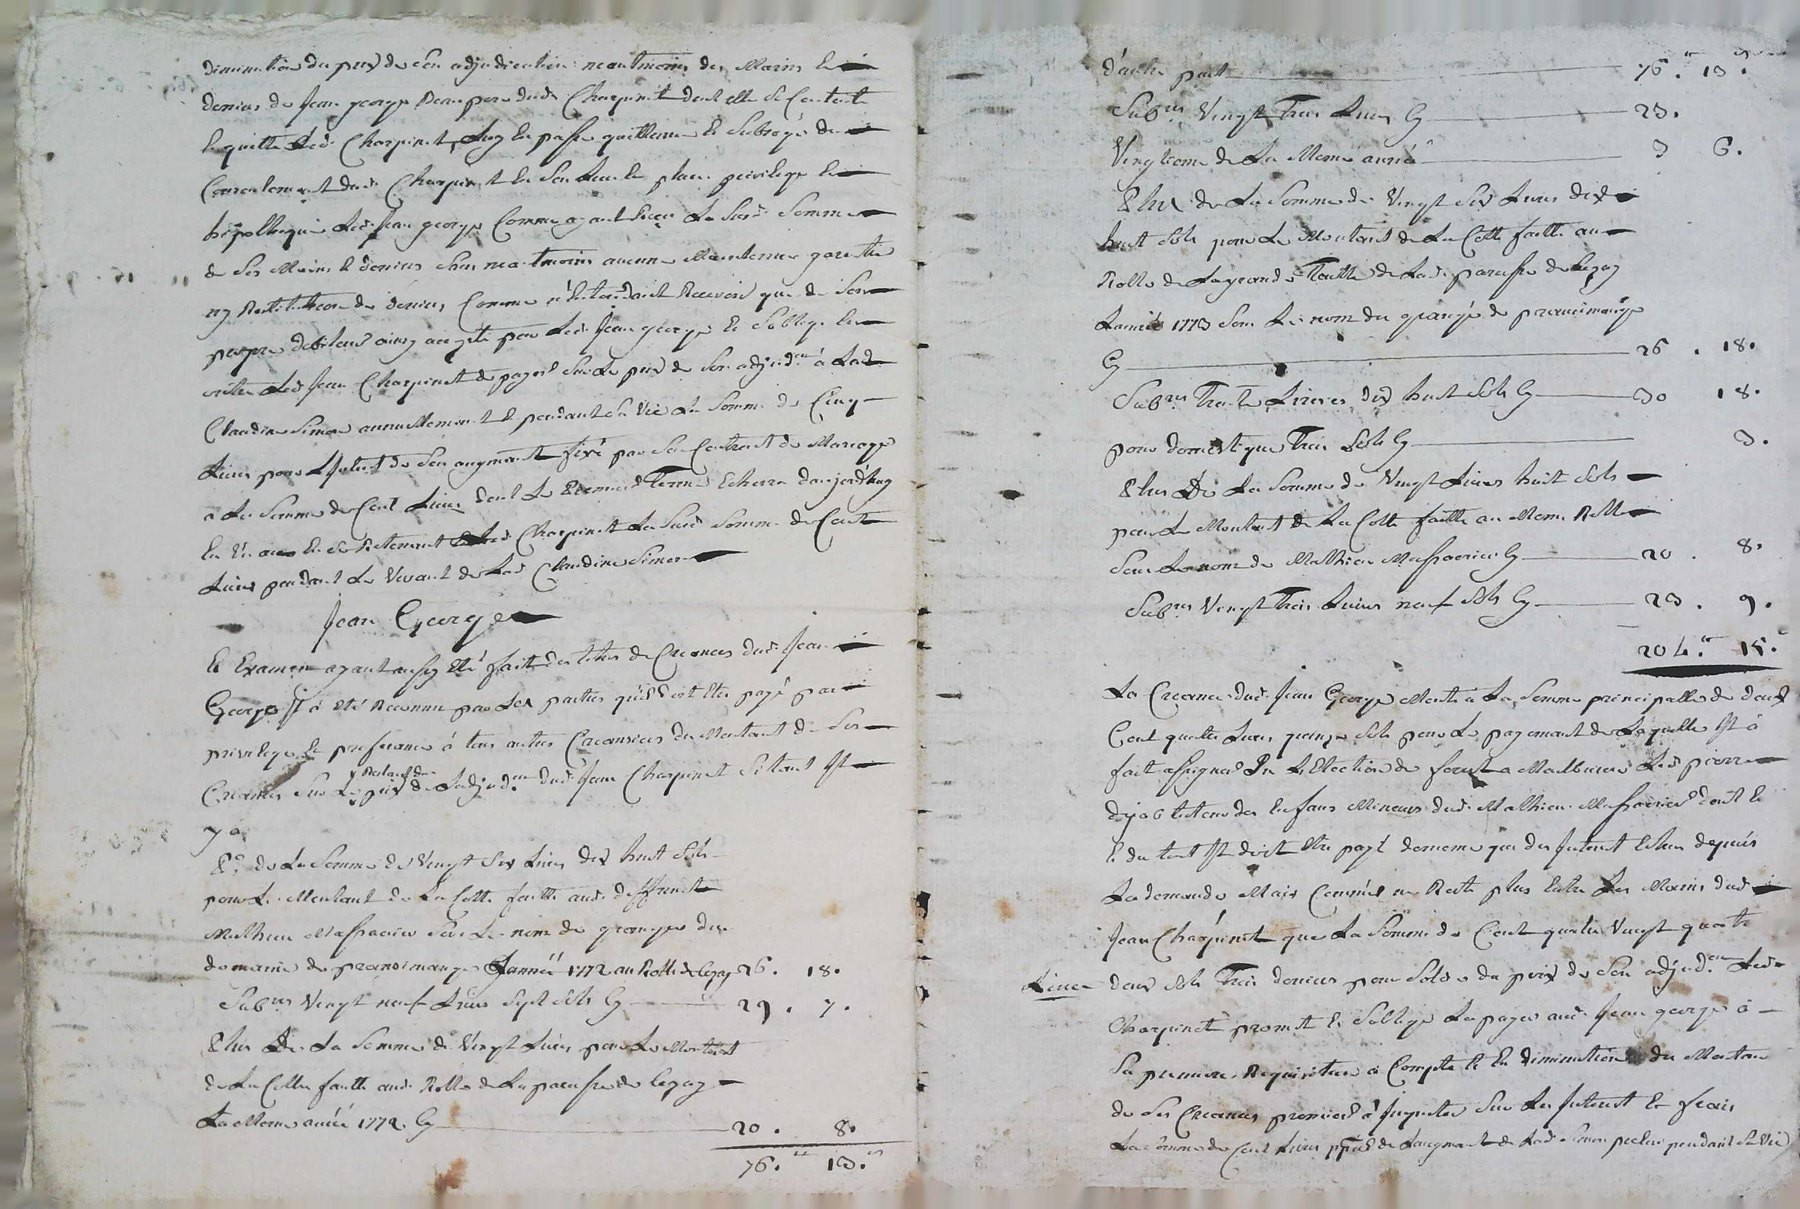 diminution du prix de son adjudication neantmoins des Mains et
deniers de Jean george Beaupere dud. Charpinet dont elle se Contente
et quitte Led. Charpinet, luy En passe quittance et Subroge du
Consentement dud. Charpinet En son Lieu et place privilege et
hipotheque Led. Jean george Comme ayant Reçu La Susd. Somme
de Ses Mains et deniers Sans neantmoins aucune Maintenue garentie
ny Restitution de deniers Comme n'Entendant Recevoir que de Son
propre debiteur ainsy accepté par Led. Jean george Et S'oblige En
outre Led. Jean Charpinet de payer Sur Le prix de Son adjud.on à Lad.
Claudine Simon annuellement Et pendant Sa Vie La Somme de Cinq
Livres pour L'Interet de Son augment fixé par Son Contract de Mariage
à La Somme de Cent Livres dont Le Premier Terme Echerra d'aujourd'huy
En Un an Et Led. Charpinet La Susd. Somme de Cent
Livres pendant Le Vivant de Lad. Claudine Simon
Jean George
Et Examen ayant aussy Eté fait des titres de Creances dud. Jean
George Il à Eté Reconnu par Les parties qu'il doit Etre payé par
privilege Et preference à tous autres Creanciers du Montant de Ses
Creances Sur Le prix de Ladjud.on dud. Jean Charpinet
7°
P.° de La Somme de Vingt Six Livres dix huit Sols
pour Le Montant de La Cotte faitte aud. deffunt
Mathieu Massacrier Sous Le nom de granger du
domaine de L'année 1772 au Rolle de Cezay 26. 18.
Sub.res Vingt neuf Livres Sept Sols Cy 29. 7.
Plus De La Somme de Vingt Livres pour Le Montant
de La Cotte faitte aud. Rolle de La paroisse de Cezay
La Meme année 1772 Cy 20. 8.
76.tt 13.s
d'autre part 76.tt 13.s
Sub.res Vingt Trois Livres Cy 23.
Vingtieme de La Meme année 3 6.
Plus de La Somme de Vingt Six Livres dix
huit Sols pour Le Montant de La Cotte faitte au
Rolle de La grande Taille de Lad. paroisse de Cezay
L'année 1773 Sous Le nom du grangé de
Cy 26. 18.
Sub.res Trente Livres dix huit Sols Cy 30 18.
pour domestique Trois Sols Cy 3.
Plus De La Somme de Vingt Livres huit Sols
pour Le Montant de La Cotte faitte au Meme Rolle
Sous Le nom de Mathieu Massacrier Cy 20. 8.
Sub.res Vingt Trois Livres neuf Sols Cy 23. 9.
204.tt 15.s
La Creance dud. Jean George Monte à La Somme principalle de deux
Cent quatre Livres quinze Sols pour Le payement de Laquelle Il à
fait assigner En L'Election de forest a Montbrison Led. pierre
dejob tuteur des Enfans Mineurs dud. Mathieu Massacrier dont Et
Et du tout Il doit Etre payé de meme que des Interet Echus depuis
La demande Mais Comme ne Reste plus Entre Les Mains dud.
Jean Charpinet que La Somme de Cent quatre Vingt quatre
Livres deux Sols Trois deniers pour Solde du prix de Son adjud.on Led.
Charpinet promet Et S'oblige La payer aud. Jean george à
Sa premiere Requisition à Compte Et En diminution du Montant
de Ses Creances premier à Imputer Sur Les Interet Et frais
La Somme de Cent Livres de Laugment de Lad. Simon pendant Sa Vie